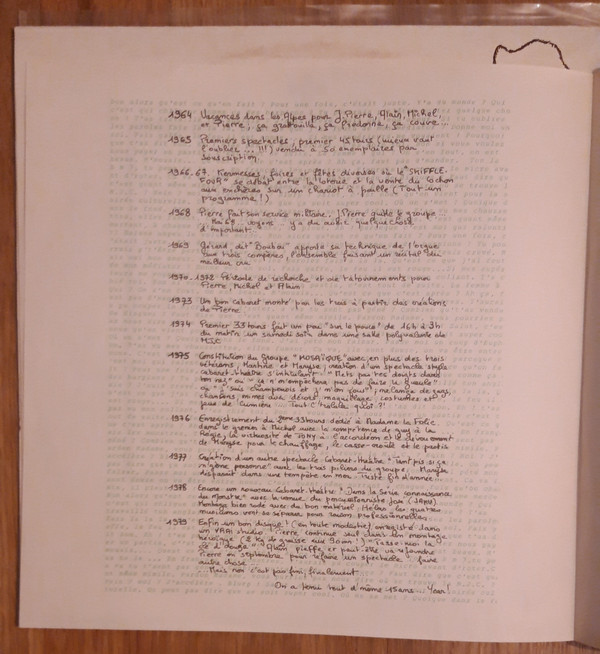 1964 Vacances dans les Alpes pour J. Pierre, Alain, Michel,
et Pierre, ça gratouille, ça fredonne, ça couve...
1965 Premiers spectacles, premier 45 tours (mieux vaut
l'oublier... !!!) vendu à 50 exemplaires par
souscription.
1966.67. Kermesses, foires et fêtes diverses où le "SKIFFLE
FOUR" se débat entre la loterie et la vente du cochon
aux enchères sur un chariot à paille (Tout un
programme!)
1968 Pierre fait son service militaire, J. Pierre quitte le groupe...
Mai 68... voyons... y a dû avoir quelque chose
d'important
1969 Gérard, dit "Boubou" apporte sa technique de l'orgue
aux trois compères, l'ensemble faisant un récital du
meilleur cru
1970.1972 Période de recherche et de tâtonnements pour
Pierre, Michel et Alain
1973 Un bon cabaret monté par les trois à partir des créations
de Pierre
1974 Premier 33 tours fait un peu "sur le pouce" de 16h à 3h
du matin un samedi soir dans une salle polyvalente de
MJC
1975 Constitution du groupe "MOSAÏQUE" avec, en plus des trois
vétérans, Martine et Maryse, création d'un spectacle style
cabaret-théâtre s'intitulant: "Mets pas tes doigts dans
ton nez" ou "ça n'empêchera pas de faire la gueule"
ou "J'suis champenois et j'm'en", mélange de gags,
chansons, mimes avec décors, maquillage, costumes et
jeux de lumière... Tout l'tralala quoi?!
1976 Enregistrement du 2ème 33 tours dédié à Madame la Folie
dans le grenier à Michel avec la compétence de Guy à la
Régie, la virtuosité de Tony à l'accordéon et le dévouement
de Maryse pour le chauffage, le casse-croûte et le pastis
1977 Création d'un autre spectacle cabaret-théâtre "Tant pis si ça
n'gêne personne" avec les trois piliers du groupe, Maryse
disparaît dans une tempête en mer. Triste fin d'année...
1978 Encore un nouveau cabaret-théâtre "Dans la série connaissance
du Monstre" avec la venue du percussionniste Jom (JAPY)
Montage bien rodé avec du bon matériel. Hélas, les quatre
musiciens vont se séparer pour raisons professionnelles
1979 Enfin un bon disque! (en toute modestie) enregistré dans
un VRAI studio. Pierre continue seul dans un montage
héroïque (2 kg de graisse aux 90 mn!) "Passe-moi la
clé d'douze". Alain piaffe et peut-être va rejoindre
Pierre en septembre pour refaire un spectacle... faire
autre chose
...Mais non c'est pas fini, finalement...
On a tenu tout d'même 15 ans... Your!